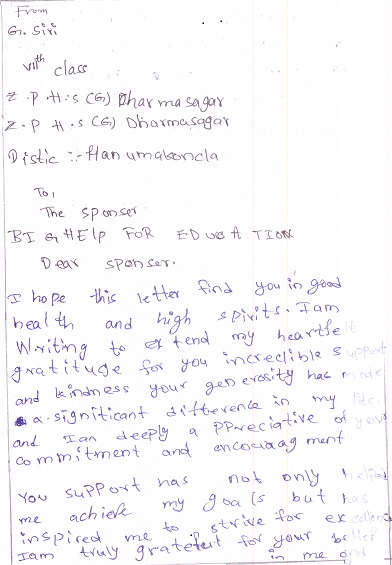 From
G. Siri
VIIth class
Z.P.H.S (G) Dharmasagar
Z.P H.S (G) Dharmasagar
Distic :- Hanumakoncla
To,
The sponser
BIG HElp FOR EDUCATION
Dear sponser.
I hope this letter find you in good
health and high spirits. I am
Writing to extend my heartfelt
gratituge for you increclible support
and kindness your generosity has made
a significant difference in my life.
and Ian deeply a ppreciative of your
commitment and encouragment
You support has not only helped
me achieve my goals but has
inspired me to strive for excellence
Iam truly gratefeut for your belief
in me and